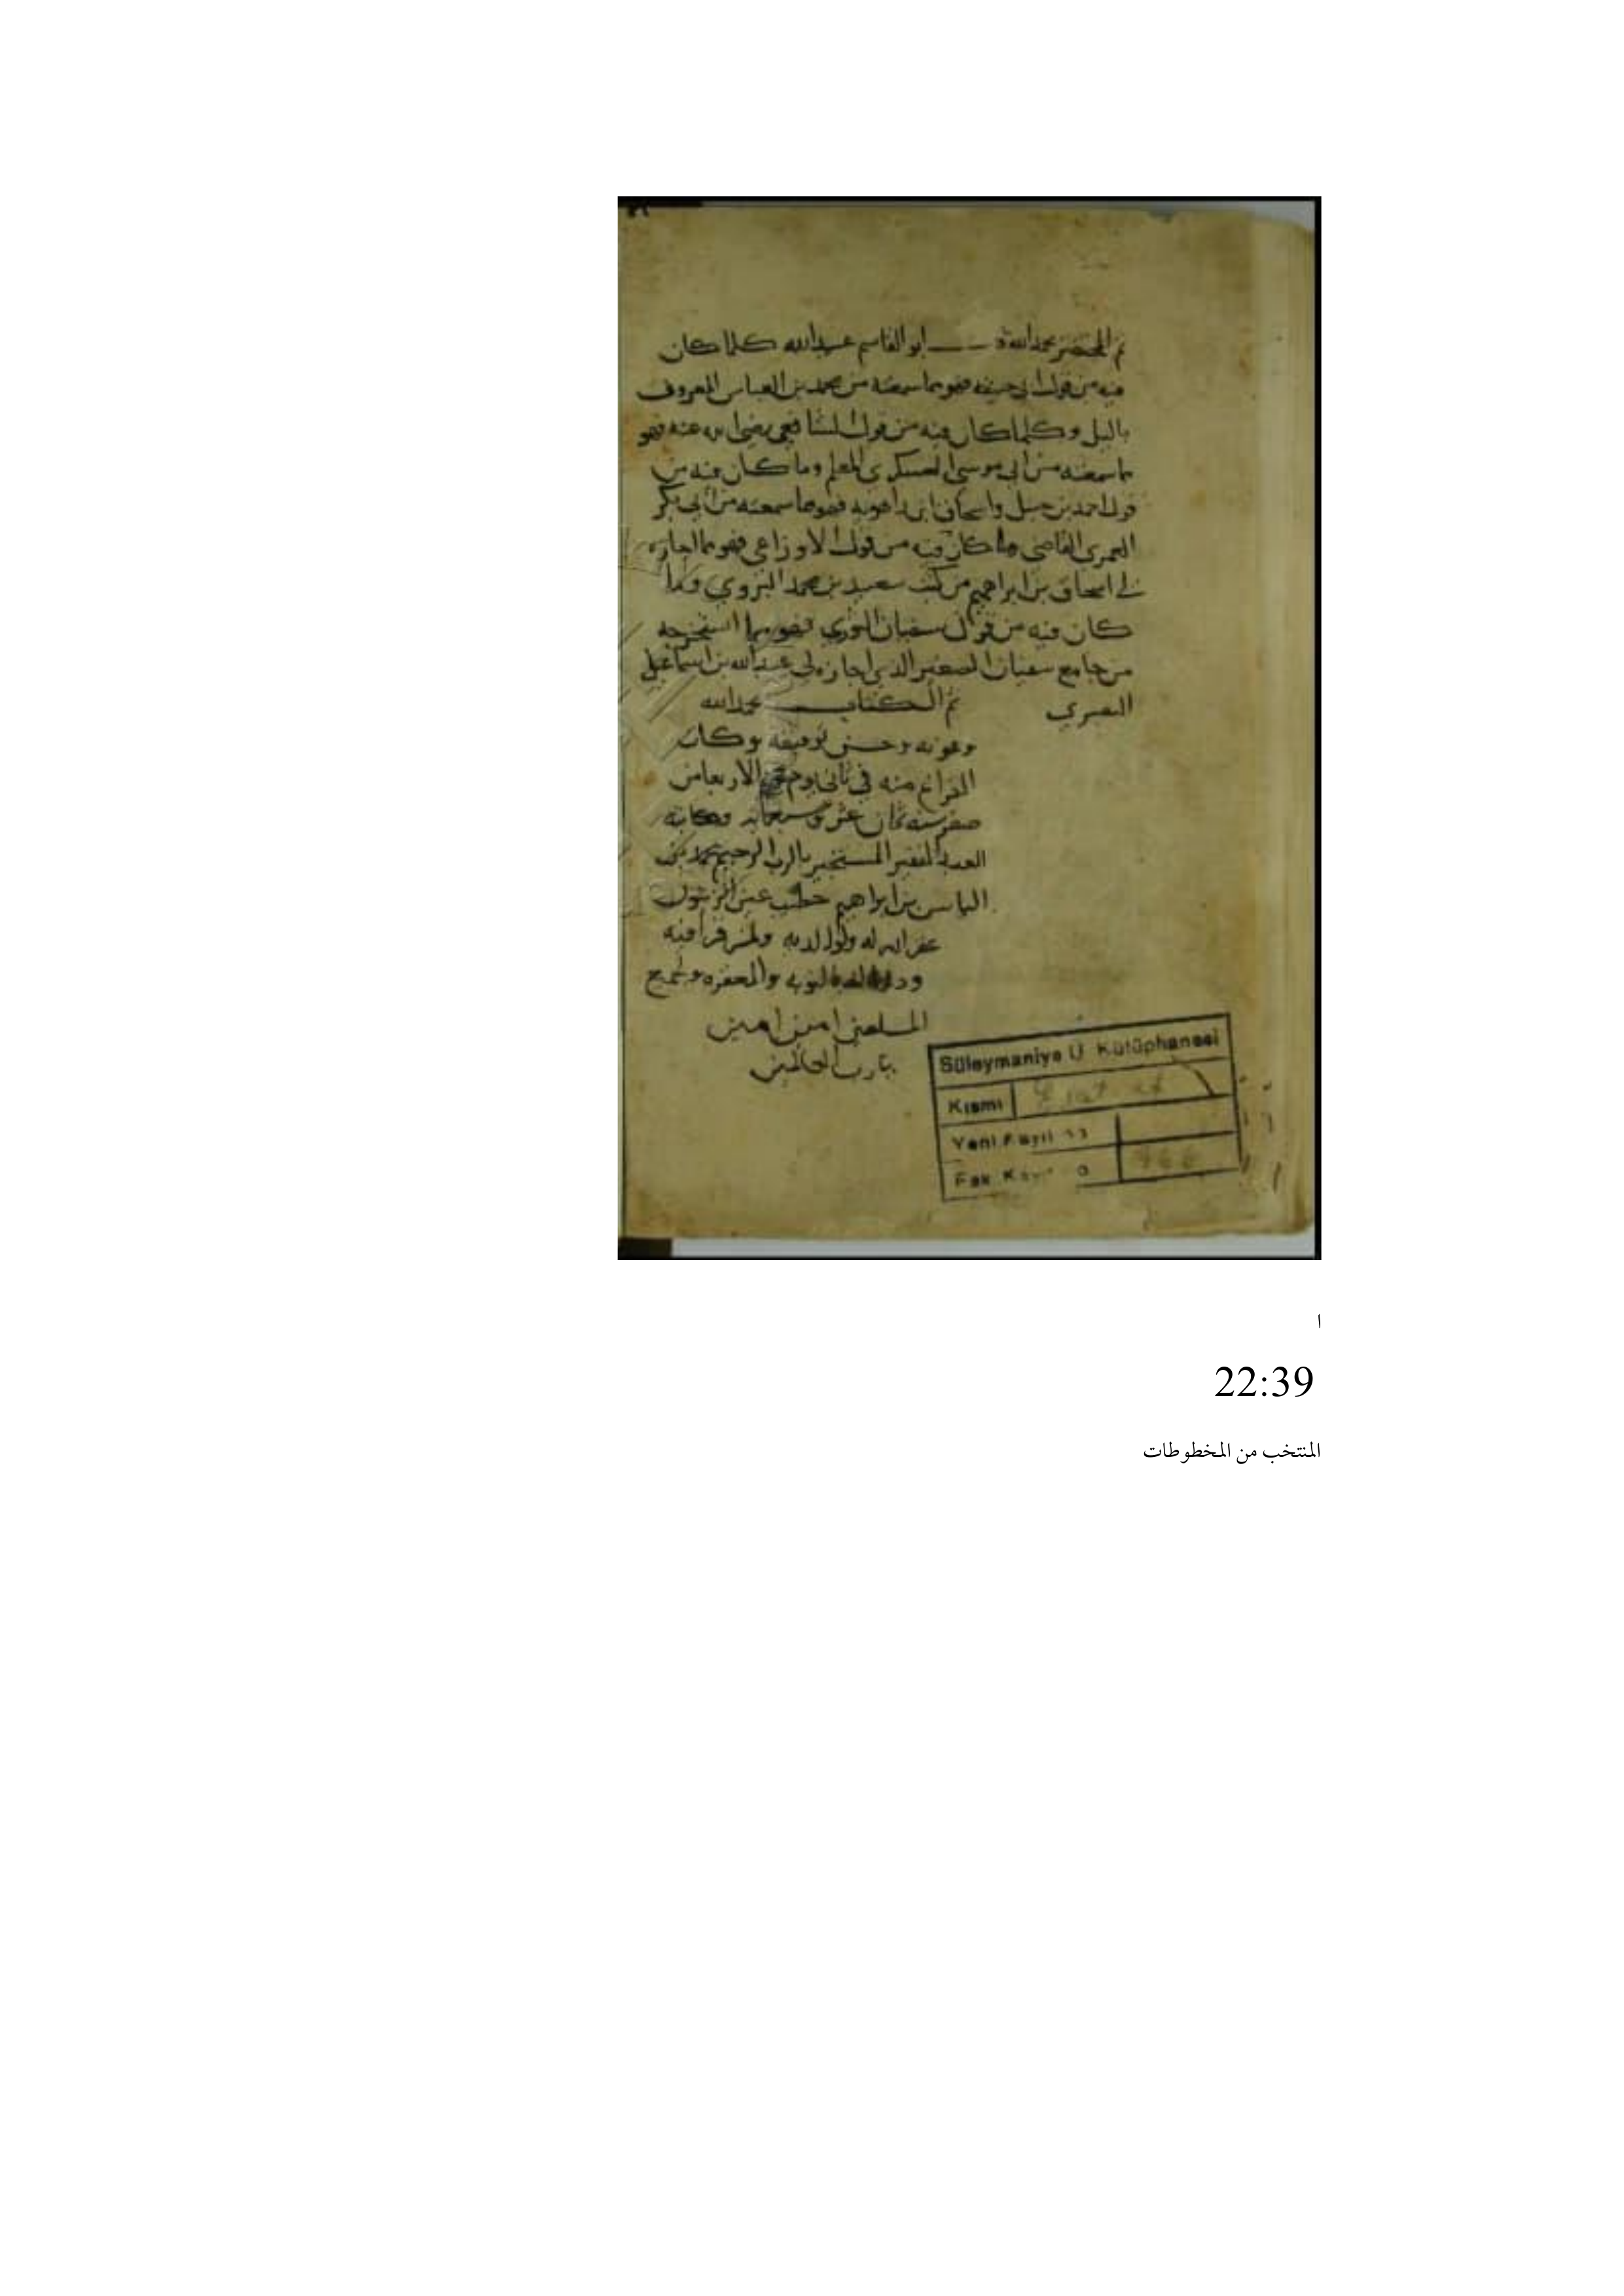 تم المختصر بحمد الله قال ابو القاسم عبد الله كلما كان
فيه من قول ابي حنيفة فهو مما سمعته من محمد بن العباس المعروف
بالليل وكلما كان فيه من قول الشافعي رضي الله عنه فهو
مما سمعته من ابي موسى العسكري المعلم وما كان فيه من
قول احمد بن حنبل واسحاق ابن راهويه فهو ما سمعته من ابي بكر
العمري القاضي وما كان فيه من قول الاوزاعي فهو مما اجازه
لي اسحاق بن ابراهيم من كتب سعيد بن محمد وما
كان فيه من قول سفيان الثوري فهو مما استخرجه
من جامع سفيان الصغير الذي اجازه لي عبد الله بن اسماعيل
البصري تم الكتاب بحمد الله
وعونه وحسن توفيقه وكان
الفراغ منه في ثاني يوم الاربعا من
صفر سنه ثمان عشر وسبعمايه وكاتبه
العبد الفقير المستجير بالرب الرحيم محمد بن
الياس بن ابراهيم خطيب عين الزيتون
غفر الله له ولوالديه ولمن قرا فيه
ودعا له بالتوبه والمغفره ولجميع
المسلمين امين امين
يارب العالمين
Süleymaniye U Kütüphanesi
Kısmı
Yeni Kayıt
ا
22:39
المنتخب من المخطوطات